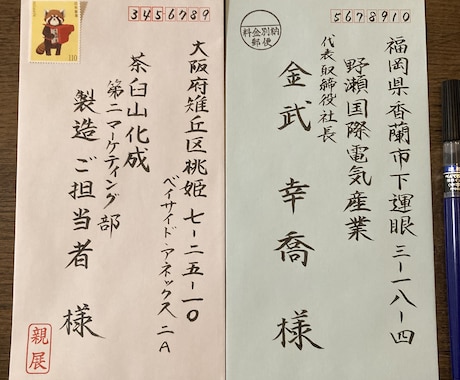 3456789
110
大阪府雉丘区桃姫 七-二五-一〇
ベイサイド・アネックス 二A
茶臼山化成
第二マーケティング部
製造 ご担当者 様
親展
5678910
料金別納
郵便
福岡県香蘭市下運眼 三-一八-四
野瀬国際電気産業
代表取締役社長
金武 幸喬 様